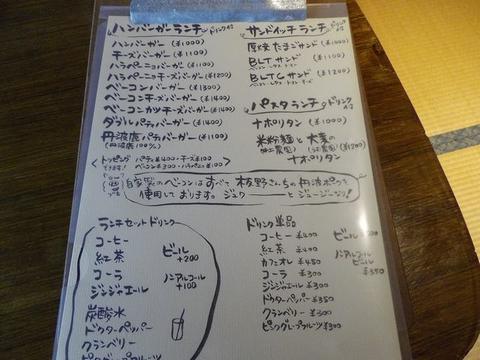 ハンバーガーランチ ドリンク付
ハンバーガー (¥1000)
チーズバーガー (¥1100)
ハラペーニョバーガー (¥1100)
ハラペーニョチーズバーガー (¥1200)
ベーコンバーガー (¥1300)
ベーコンチーズバーガー (¥1400)
ベーコンカツチーズバーガー (¥1400)
ダブルパティバーガー (¥1400)
丹波鹿パティバーガー (¥1100)
(鹿肉100%)
トッピング パティ¥400・チーズ¥100
できます! ベーコン¥300・ハラペーニョ¥100
サンドイッチランチ ドリンク付
厚焼たまごサンド (¥1000)
BLTサンド (¥1100)
ベーコン・レタス・トマト
BLTCサンド (¥1200)
ベーコン・レタス・トマト・チーズ
パスタランチ ドリンク付
ナポリタン (¥1000)
米粉麺と大葉の
ナポリタン (¥1200)
自家製のベーコンはすべて板野さんちの丹波ポークを
使用しております。ジュワーーーとジューシーなり!
ランチセットドリンク
コーヒー
紅茶
コーラ
ジンジャエール
炭酸水
ドクターペッパー
クランベリー
ピンクグレープフルーツ
ビール
+200
ノンアルコール
+100
ドリンク単品
コーヒー ¥400
紅茶 ¥400
カフェオレ ¥450
コーラ ¥300
ジンジャエール ¥300
ドクターペッパー ¥350
クランベリー ¥300
ピンクグレープフルーツ ¥300
ビール
ノンアルコール
ビール ¥350